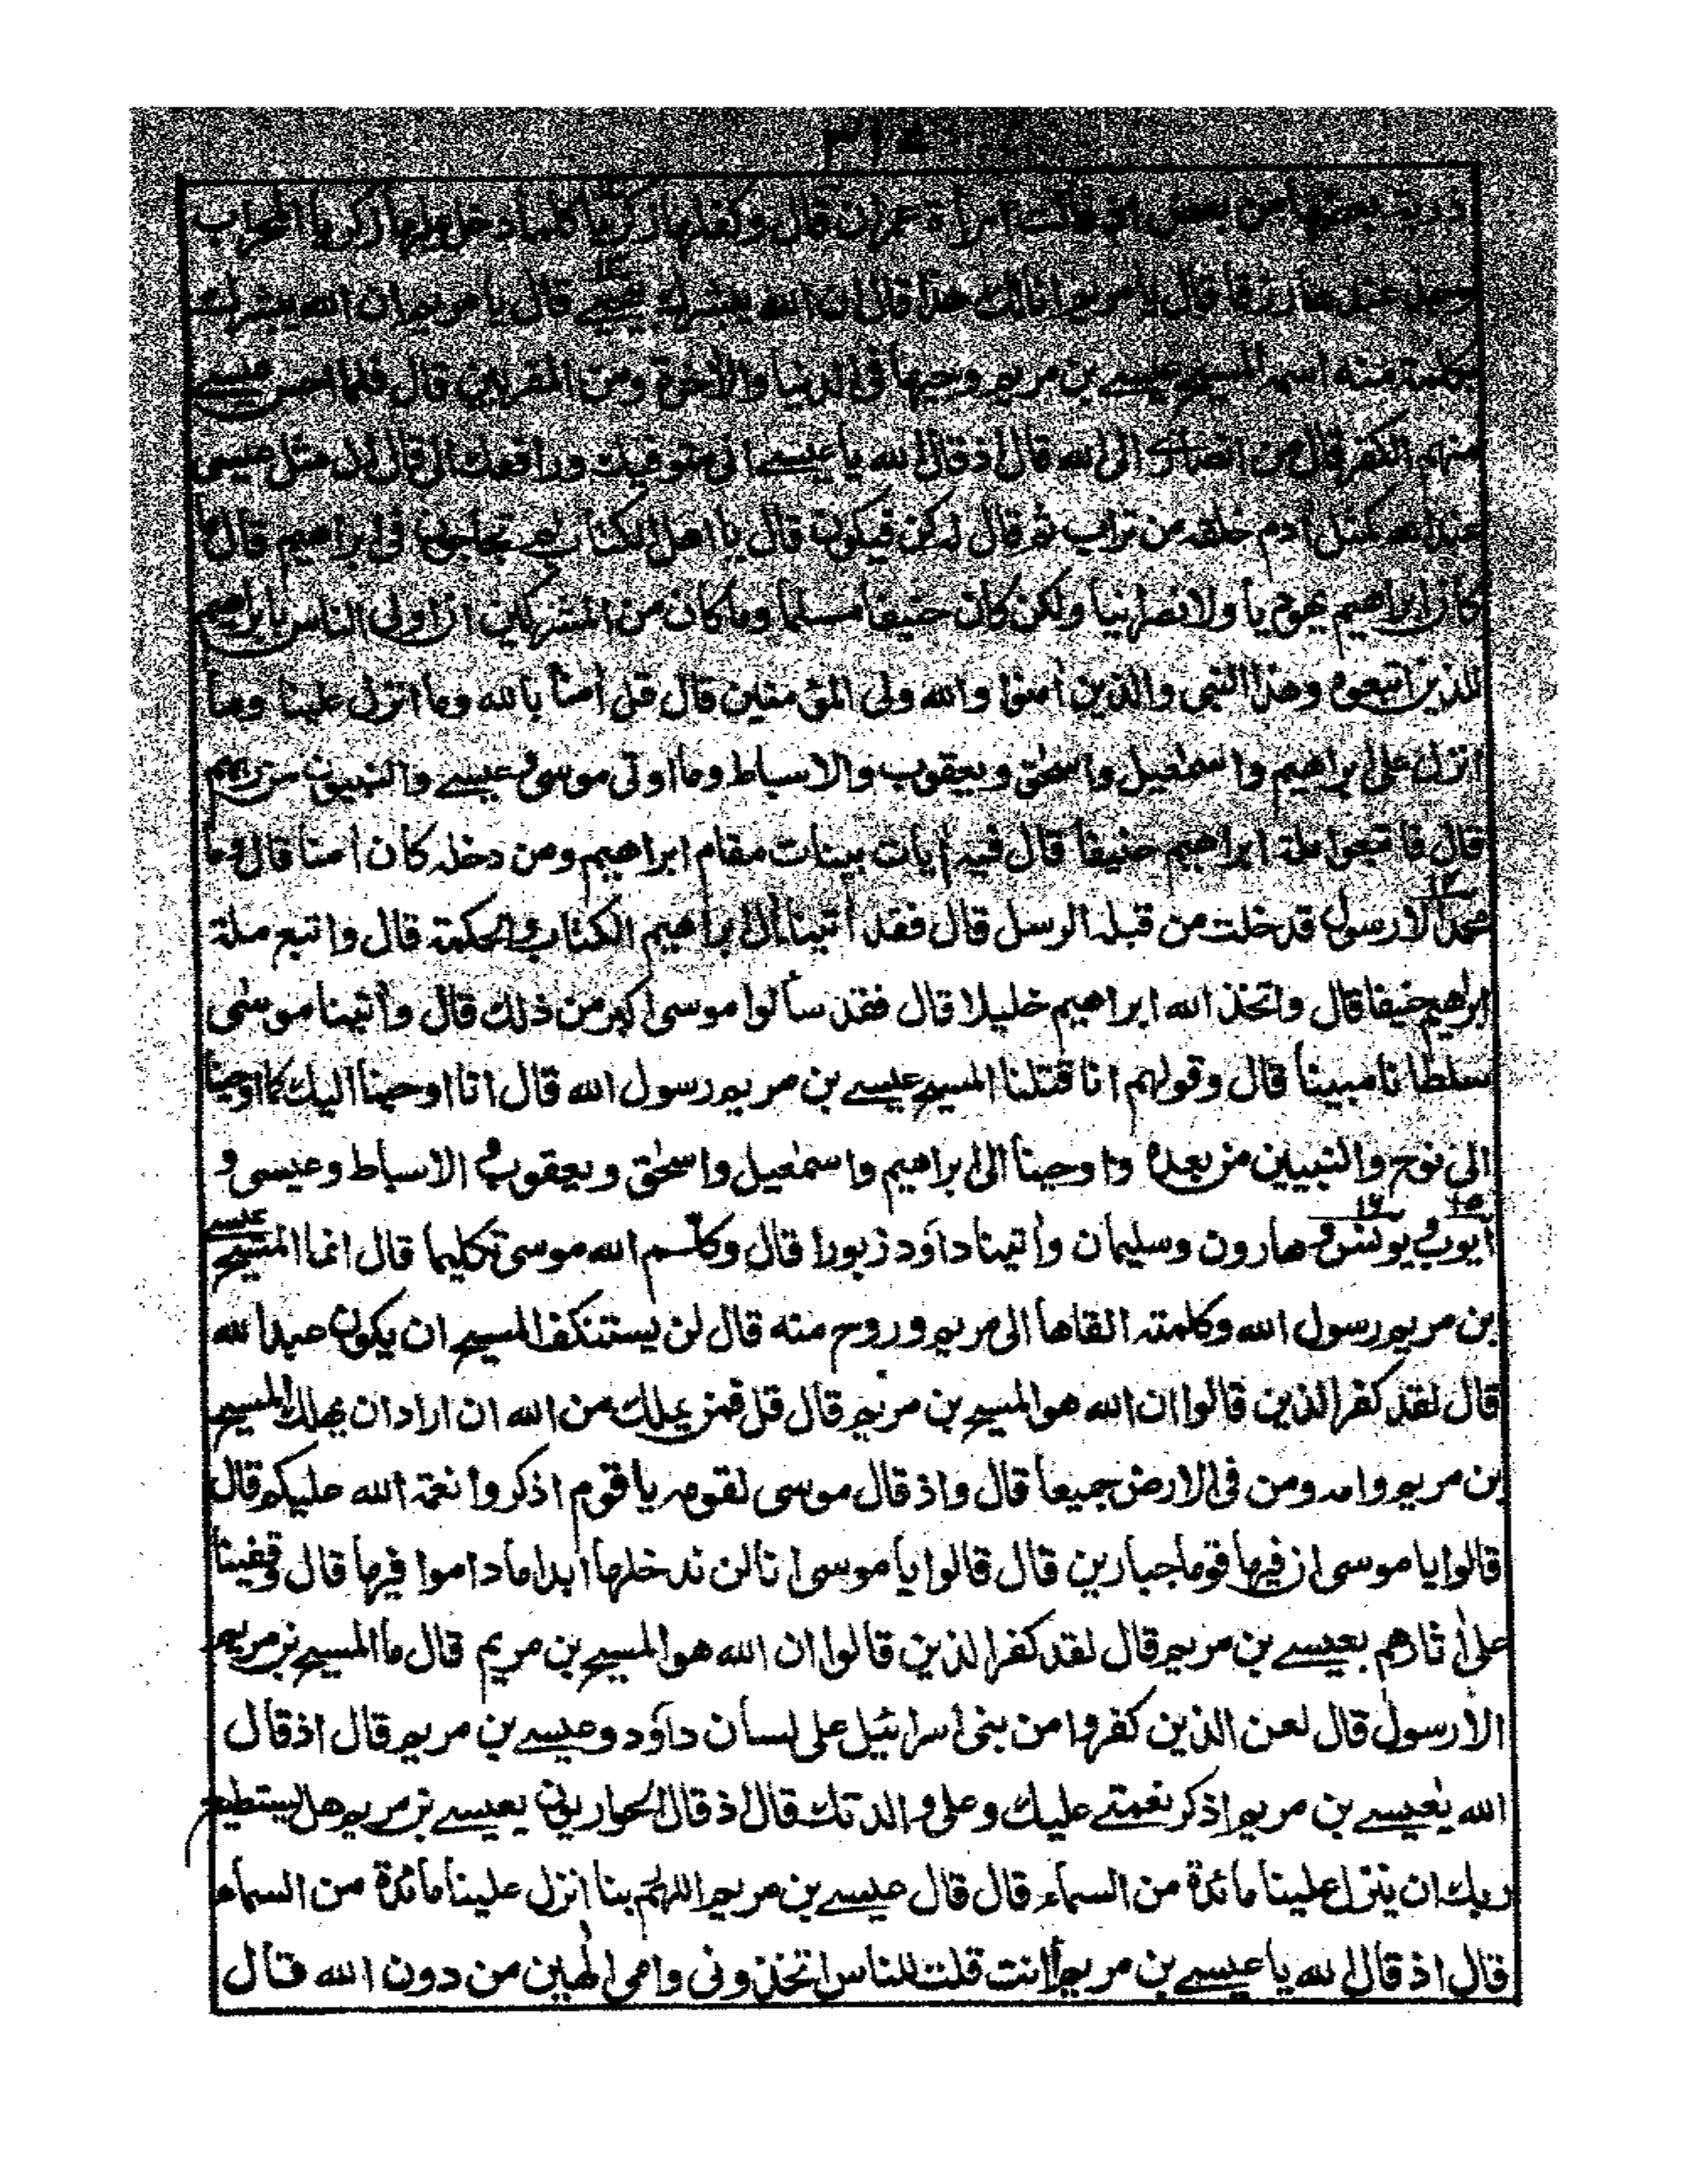 ذرية بعضها من بعض اذ قالت امرأة عمران قال وكفلها زكريا كلما دخل عليها زكريا المحراب
وجد عندها رزقا قال يا مريم انى لك هذا قال ان الله يبشرك بيحيى قال يا مريم ان الله يبشرك
بكلمة منه اسمه المسيح عيسى بن مريم وجيها فى الدنيا والآخرة ومن المقربين قال فلما احس عيسى
منهم الكفر قال من انصارى الى الله قال اذ قال الله يا عيسى انى متوفيك ورافعك الى قال ان مثل عيسى
عند الله كمثل آدم خلقه من تراب ثم قال له كن فيكون قال يا اهل الكتاب لم تحاجون فى ابراهيم قال ما
كان ابراهيم يهوديا ولا نصرانيا ولكن كان حنيفا مسلما وما كان من المشركين ان اولى الناس بابراهيم
للذين اتبعوه وهذا النبى والذين آمنوا والله ولى المؤمنين قال قل آمنا بالله وما انزل علينا وما
انزل على ابراهيم واسمعيل واسحق ويعقوب والاسباط وما اوتى موسى وعيسى والنبيون من ربهم
قال فاتبعوا ملة ابراهيم حنيفا قال فيه آيات بينات مقام ابراهيم ومن دخله كان آمنا قال وما
محمد الا رسول قد خلت من قبله الرسل قال فقد آتينا آل ابراهيم الكتاب والحكمة قال واتبع ملة
ابرهيم حنيفا قال واتخذ الله ابراهيم خليلا قال فقد سألوا موسى اكبر من ذلك قال وآتينا موسى
سلطانا مبينا قال وقولهم انا قتلنا المسيح عيسى بن مريم رسول الله قال انا اوحينا اليك كما اوحينا
الى نوح والنبيين من بعده واوحينا الى ابراهيم واسمعيل واسحق ويعقوب والاسباط وعيسى و
ايوب ويونس وهارون وسليمان وآتينا داود زبورا قال وكلم الله موسى تكليما قال انما المسيح عيسى
بن مريم رسول الله وكلمته القاها الى مريم وروح منه قال لن يستنكف المسيح ان يكون عبدا لله
قال لقد كفر الذين قالوا ان الله هو المسيح بن مريم قال قل فمن يملك من الله ان اراد ان يهلك المسيح
بن مريم وامه ومن فى الارض جميعا قال واذ قال موسى لقومه يا قوم اذكروا نعمة الله عليكم قال
قالوا يا موسى ان فيها قوما جبارين قال قالوا يا موسى انا لن ندخلها ابدا ما داموا فيها قال وقفينا
على آثارهم بعيسى بن مريم قال لقد كفر الذين قالوا ان الله هو المسيح بن مريم قال ما المسيح بن مريم
الا رسول قال لعن الذين كفروا من بنى اسرائيل على لسان داود وعيسى بن مريم قال اذ قال
الله يعيسى بن مريم اذكر نعمتى عليك وعلى والدتك قال اذ قال الحواريون يعيسى بن مريم هل يستطيع
ربك ان ينزل علينا مائدة من السماء قال قال عيسى بن مريم اللهم ربنا انزل علينا مائدة من السماء
قال اذ قال الله يا عيسى بن مريم أانت قلت للناس اتخذونى وامى الهين من دون الله قال